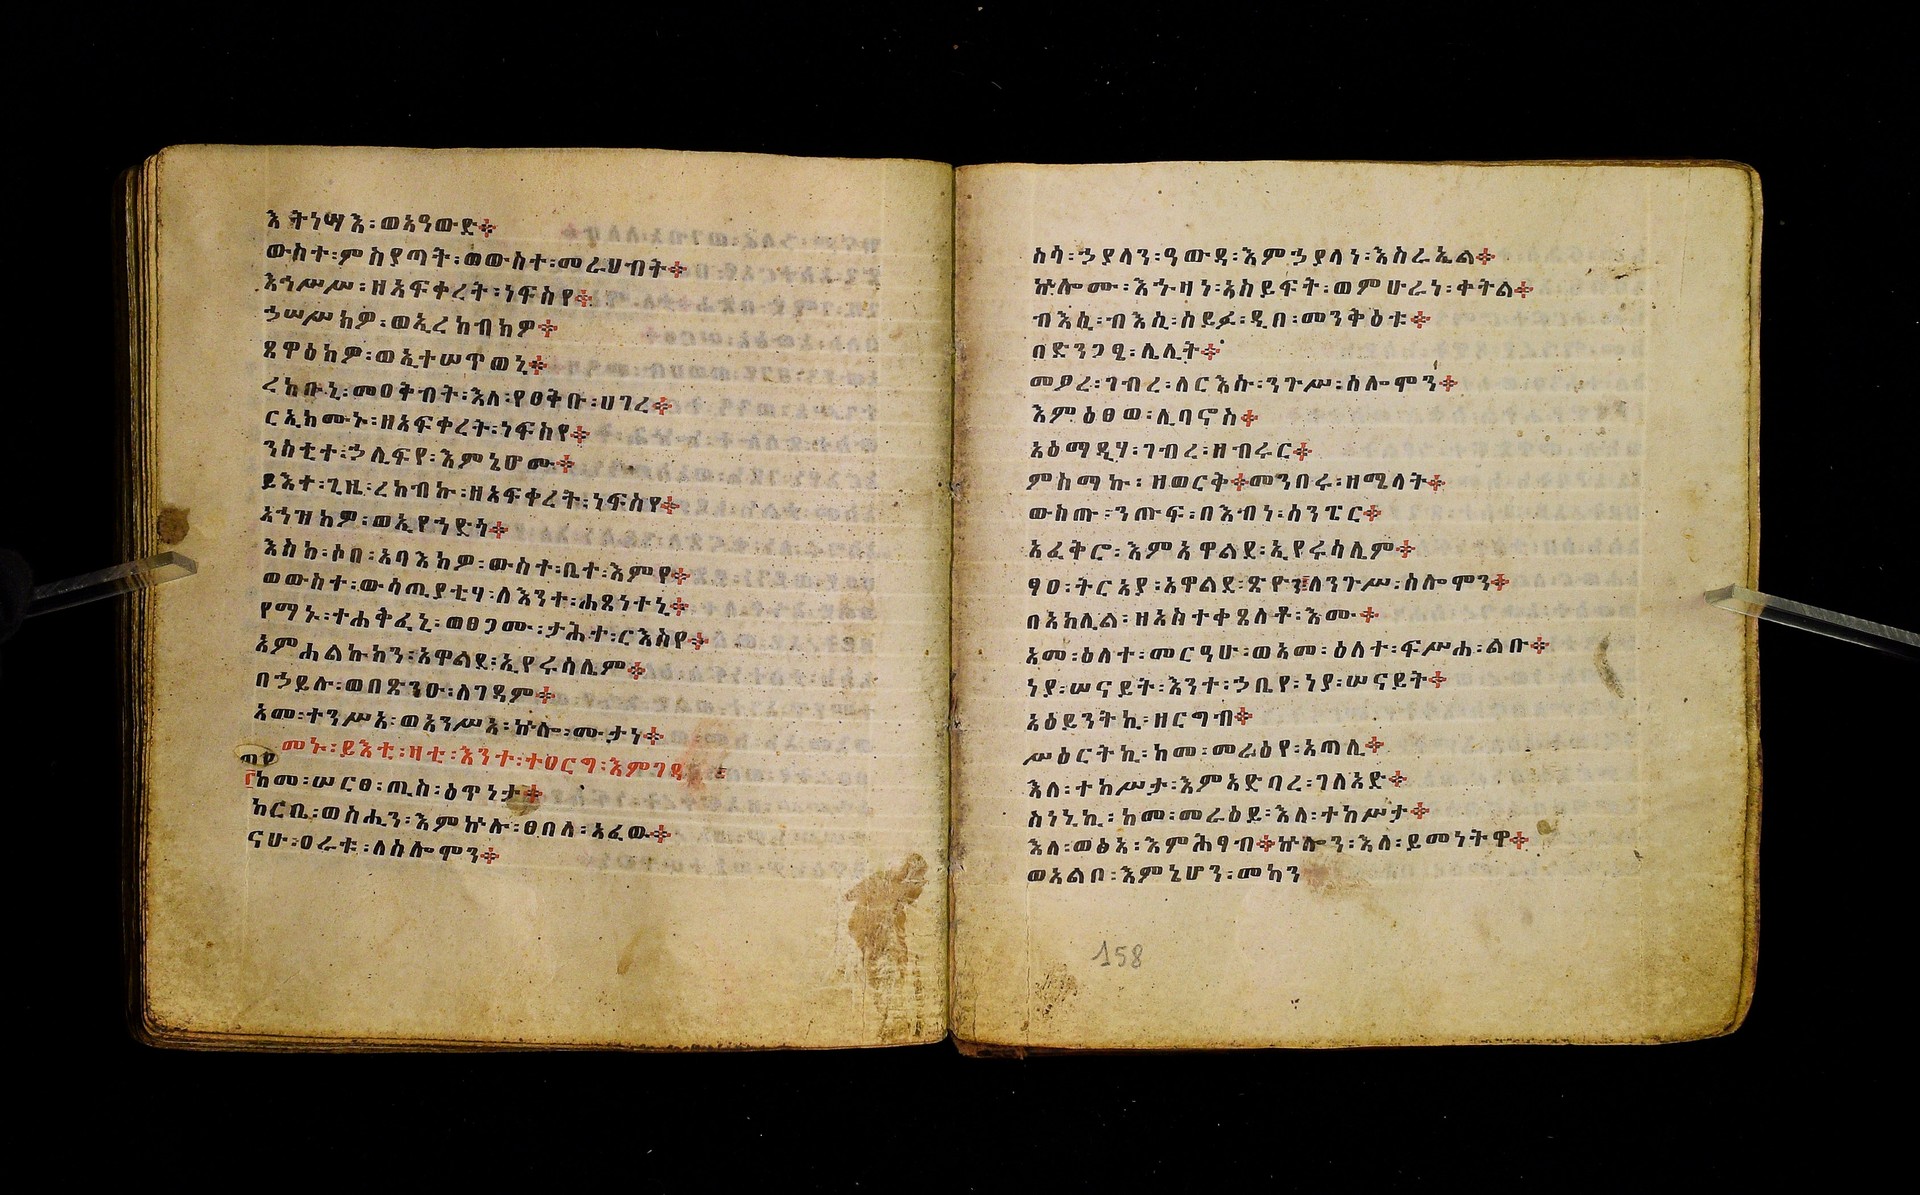 እትነሣእ፡ወእዓውድ፨
ውስተ፡ምስያጣት፡ወውስተ፡መራህብት፨
እኅሥሥ፡ዘአፍቀረት፡ነፍስየ፨
ኃሠሥክዎ፡ወኢረከብክዎ፨
ጸዋዕክዎ፡ወኢተሠጥወኒ፨
ረከቡኒ፡መዐቅብት፡እለ፡የዐቅቡ፡ሀገረ፨
ርኢክሙኑ፡ዘአፍቀረት፡ነፍስየ፨
ንስቲተ፡ኃሊፍየ፡እምኔሆሙ፨
ይእተ፡ጊዜ፡ረከብኩ፡ዘአፍቀረት፡ነፍስየ፨
አኀዝክዎ፡ወኢየኀድጎ፨
እስከ፡ሶበ፡አባእክዎ፡ውስተ፡ቤተ፡እምየ፨
ወውስተ፡ውሳጢያቲሃ፡ለእንተ፡ሐፀነተኒ፨
የማኑ፡ተሐቅፈኒ፡ወፀጋሙ፡ታሕተ፡ርእስየ፨
አምሐልኩክን፡አዋልደ፡ኢየሩሳሊም፨
በኃይሉ፡ወበጽንዑ፡ለገዳም፨
እመ፡ተንሥአ፡ወአንሥአ፡ኵሎ፡ሙታነ፨
መኑ፡ይእቲ፡ዛቲ፡እንተ፡ተሀርግ፡እምገዳ
ከመ፡ሠርፀ፡ጢስ፡ዕጥነታ፨
ከርቤ፡ወስሒን፡እምኵሉ፡ፀበለ፡አፈው፨
ናሁ፡ዐራቱ፡ለሰሎሞን፨
ስሳ፡ኃያላን፡ዓውዳ፡እምኃያላነ፡እስራኤል፨
ኵሎሙ፡እኁዛነ፡አስይፍት፡ወምሁራነ፡ቀትል፨
ብእሲ፡ብእሲ፡ሰይፉ፡ዲበ፡መንቅዕቱ፨
በድንጋፄ፡ሌሊት፨
መፆረ፡ገብረ፡ለርእሱ፡ንጉሥ፡ሰሎሞን፨
እምዕፀወ፡ሊባኖስ፨
አዕማዲሃ፡ገብረ፡ዘብሩር፨
ምስማኩ፡ዘወርቅ፨መንበሩ፡ዘሜላት፨
ውስጡ፡ንጡፍ፡በእብነ፡ሰንፔር፨
አፈቅሮ፡እምአዋልደ፡ኢየሩሳሌም፨
ፃዐ፡ትርአያ፡አዋልደ፡ጽዮን፡ለንጉሥ፡ሰሎሞን፨
በአክሊል፡ዘአስተቀጸለቶ፡እሙ፨
አመ፡ዕለተ፡መርዓሁ፡ወአመ፡ዕለተ፡ፍሥሐ፡ልቡ፨
ነያ፡ሠናይት፡እንተ፡ኃቤየ፡ነያ፡ሠናይት፨
አዕይንትኪ፡ዘርግብ፨
ሥዕርትኪ፡ከመ፡መራዕየ፡አጣሊ፨
እለ፡ተከሥታ፡እምአድባረ፡ገለአድ፨
ስነኒኪ፡ከመ፡መራዕይ፡እለ፡ተከሥታ፨
እለ፡ወፅአ፡እምሕፃብ፨ኵሎን፡እለ፡ይመነትዋ፨
ወአልቦ፡እምኔሆን፡መካን
158